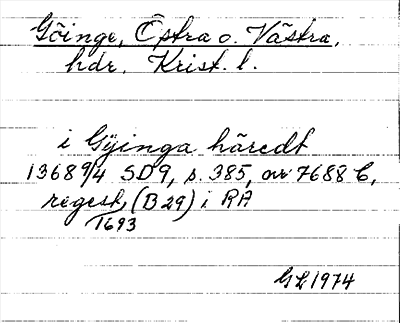 Göinge, Östra o. Västra,
hdr, Krist. l.
i Gyinga häredt
1368 9/4 SD9, s. 385, or 7688 C,
regest, (B 29) i RA
1693
GL 1974